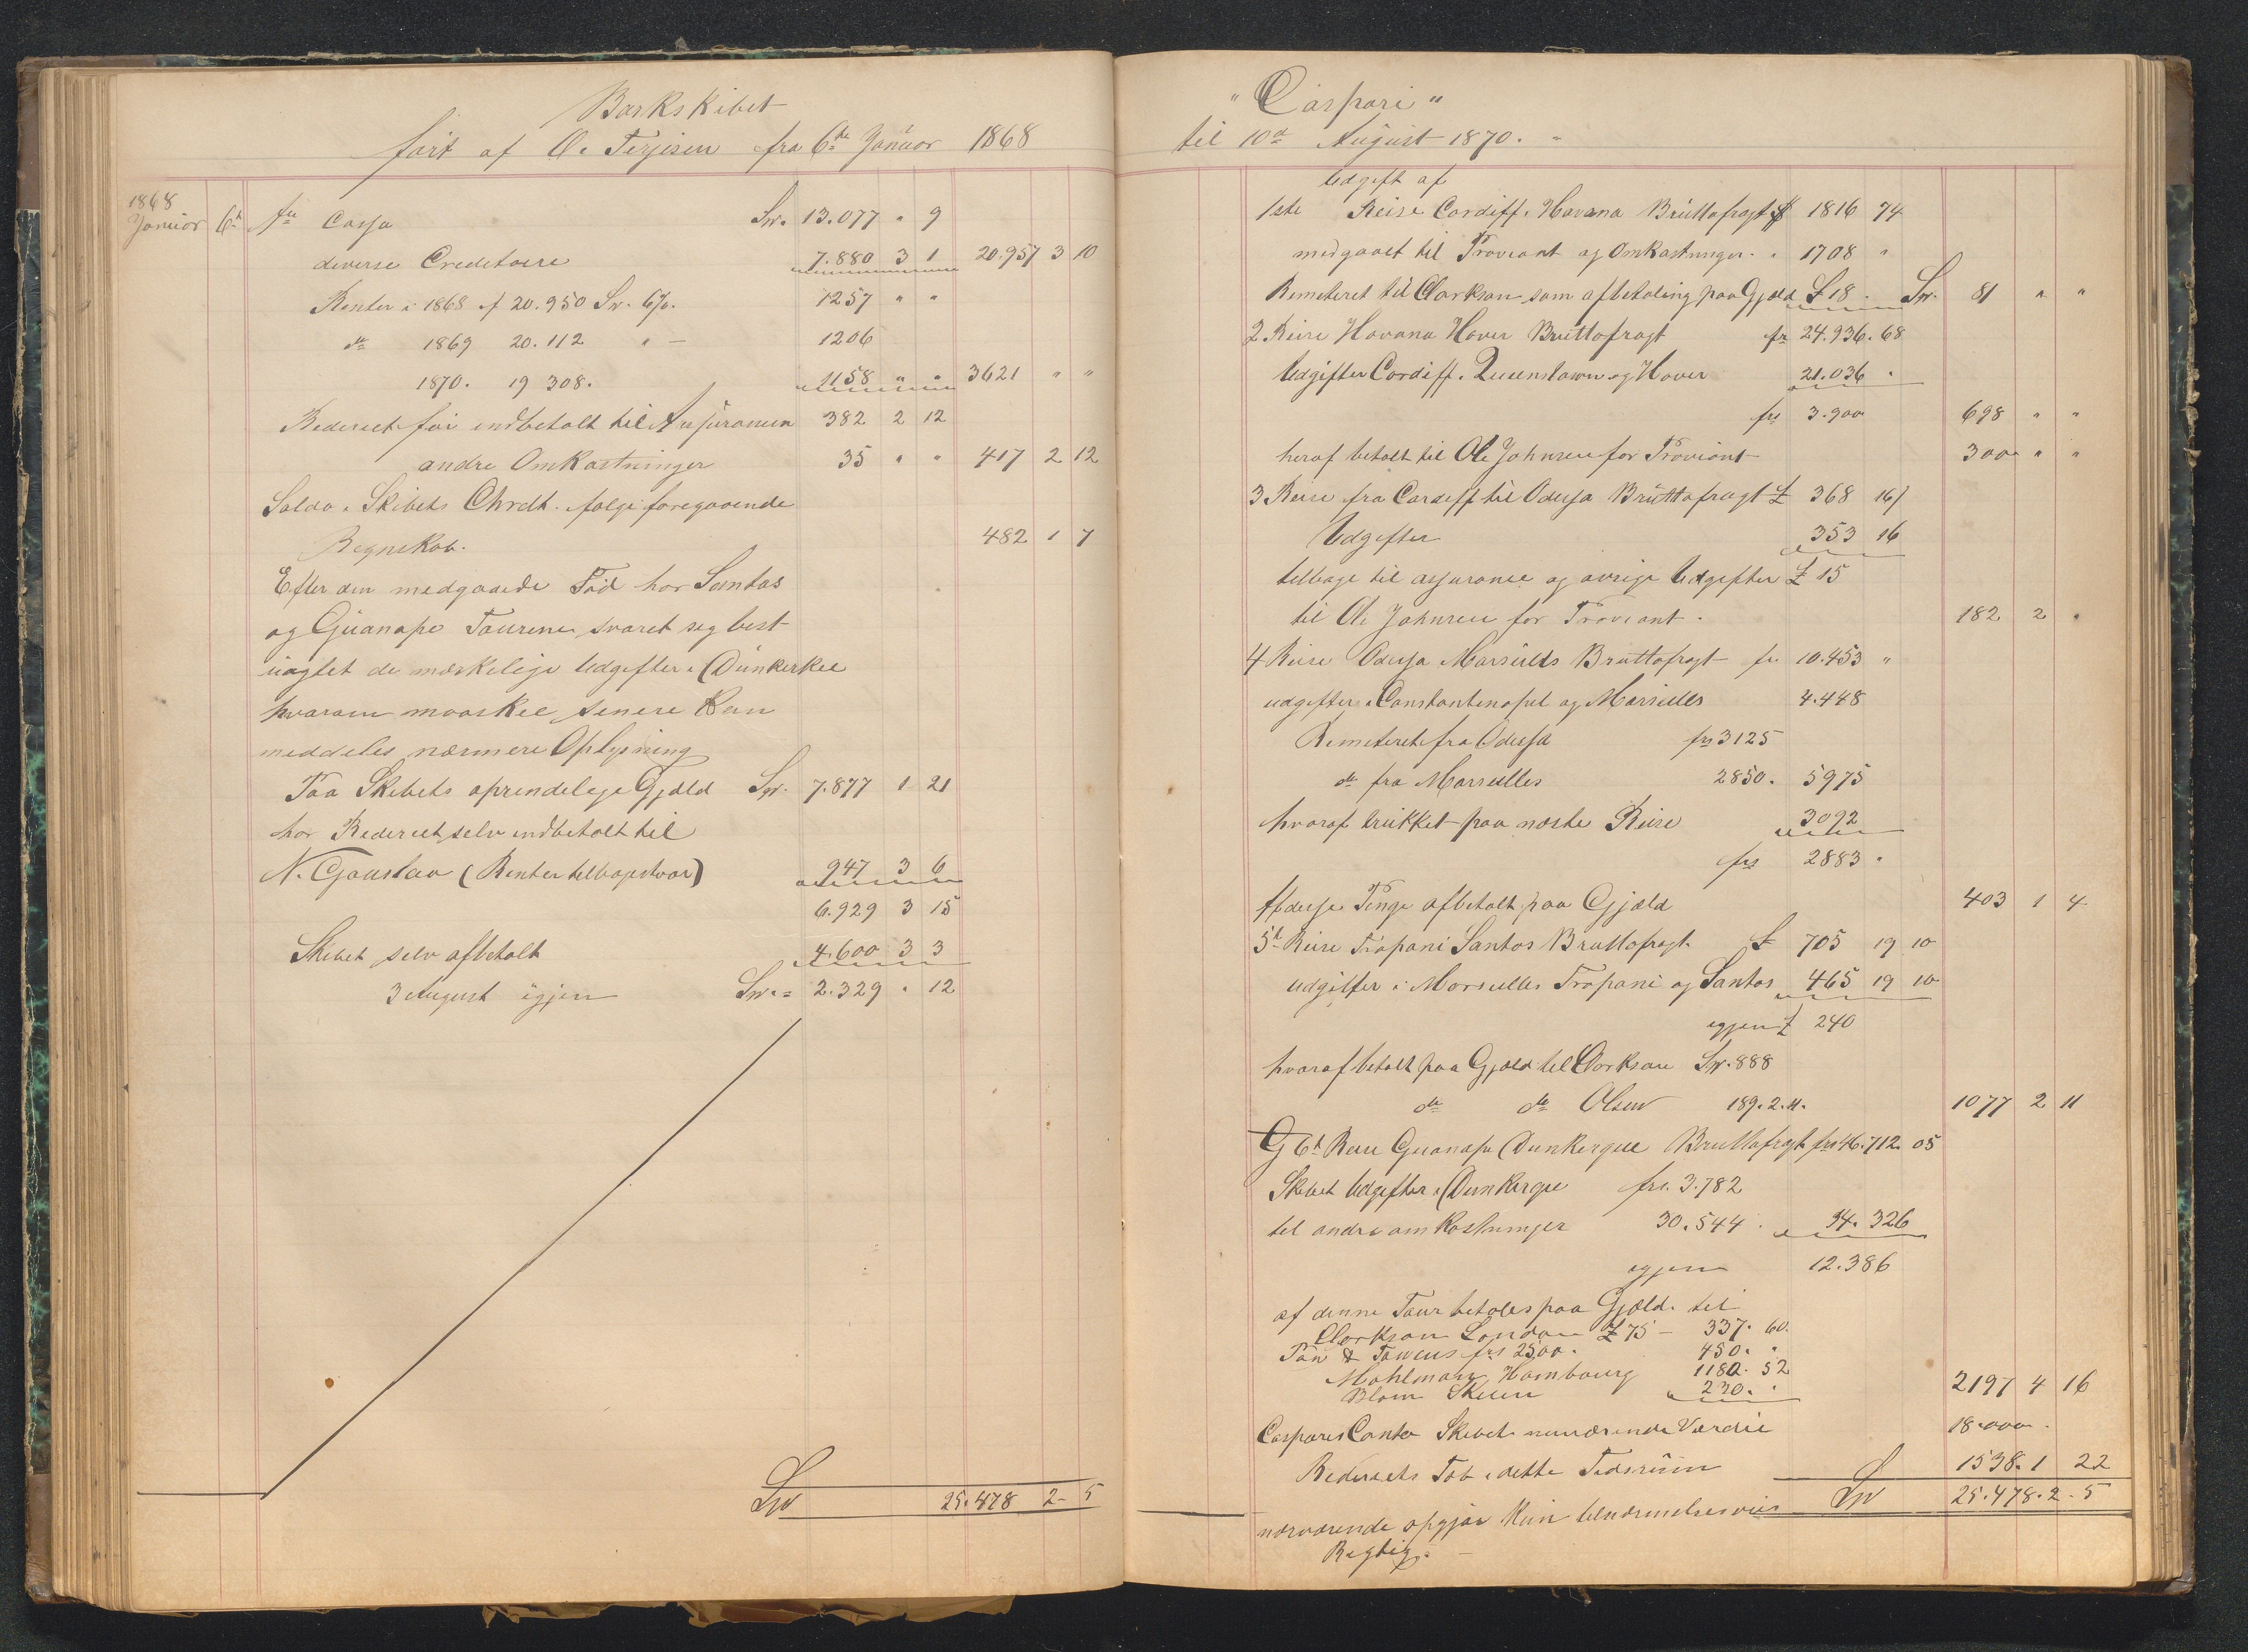 Barkskibet
ført af O. Terjesen fra 6te Januar 1868
1868
Januar 6t Pr Cassa Sp. 13.077 " 9
diverse Creditorer 7.880 3 1 20.957 3 10
Renter i 1868 af 20.950 Sp. 6%. 1257 " "
do 1869 20.112 " - 1206
1870. 19 308. 1158 " " 3621 " "
Rederiet for indbetalt til Assurancen 382 2 12
andre Omkostninger 35 " " 417 2 12
Saldo i Skibets Contr. følge foregaaende
Regnskab. 482 1 7
Efter den medgaaede Tid har Santos
og Guanape Tourene svaret seg best
uagtet de mærkelige Udgifter i Dunkerke
hvorom maaskee senere kan
meddeles nærmere Oplysning
Paa Skibets oprindelige Gjæld Sp. 7.877 1 21
har Rederiet selv indbetalt til
N. Gaustav (Renter tilbageholdt) 947 3 6
6.929 3 15
Skibet selv afbetalt 4.600 3 3
3 August igjen Sp. = 2.329 " 12
Sp 25.478 2 - 5
"Caspari"
til 10de August 1870. "
Udgift af
1ste Reise Cardiff. Havana Bruttofragt $ 1816 74
medgaaet til Proviant og Omkostninger. " 1708 "
Remiteret til Clarkson som afbetaling paa Gjæld £ 18. Sp. 81 " "
2 Reise Havana Haver Bruttofragt fr 24.936.68
Udgifter Cardiff. Queenstown og Haver 21.036 "
frs 3.900 698 " "
heraf betalt til Ole Johnsen for Proviant 300 " "
3 Reise fra Cardiff til Odessa Bruttofragt £ 368 16/
Udgifter 353 16
tilbage til assurance og øvrige Udgifter £ 15
til Ole Johnsen for Proviant. 182 2 "
4 Reise Odessa Marseilles Bruttofragt fr. 10.453 "
udgifter i Constantinopel og Marseilles 4.448
Remiteret fra Odessa frs 3125
do fra Marseilles 2850. 5975
hvoraf trukket paa næste Reise 3092
frs 2883 "
disse Penge afbetalt paa Gjæld 403 1 4
5t Reise Trapani Santos Bruttofragt. £ 705 19 10
udgifter i Marseilles Trapani og Santos 465 19 10
igjen £ 240
hvoraf betalt paa Gjæld til Clarkson Sp. 888
do do Olsen 189.2.11. 1077 2 11
6t Reise Guanape Dunkerque Bruttofragt frs 46.712 05
Skibet Udgifter i Dunkerque frs. 3.782
til andre omkostninger 30.544. 34.326
igjen 12.386
af denne Tour betales paa Gjæld. til
Clarkson London £ 75 - 337. 60.
frs 2500. 450. "
Mahlmann Hambourg 1180. 52
Blom Skien 230. " 2197 4 16
Casparis Conto Skibets nuværende Værdie 18.000.
Rederiets Tab i dette Tidsrum 1538.1 22
Sp 25.478.2.5
nærværende opgjør kun tilnærmelsesviis
Rigtig. -